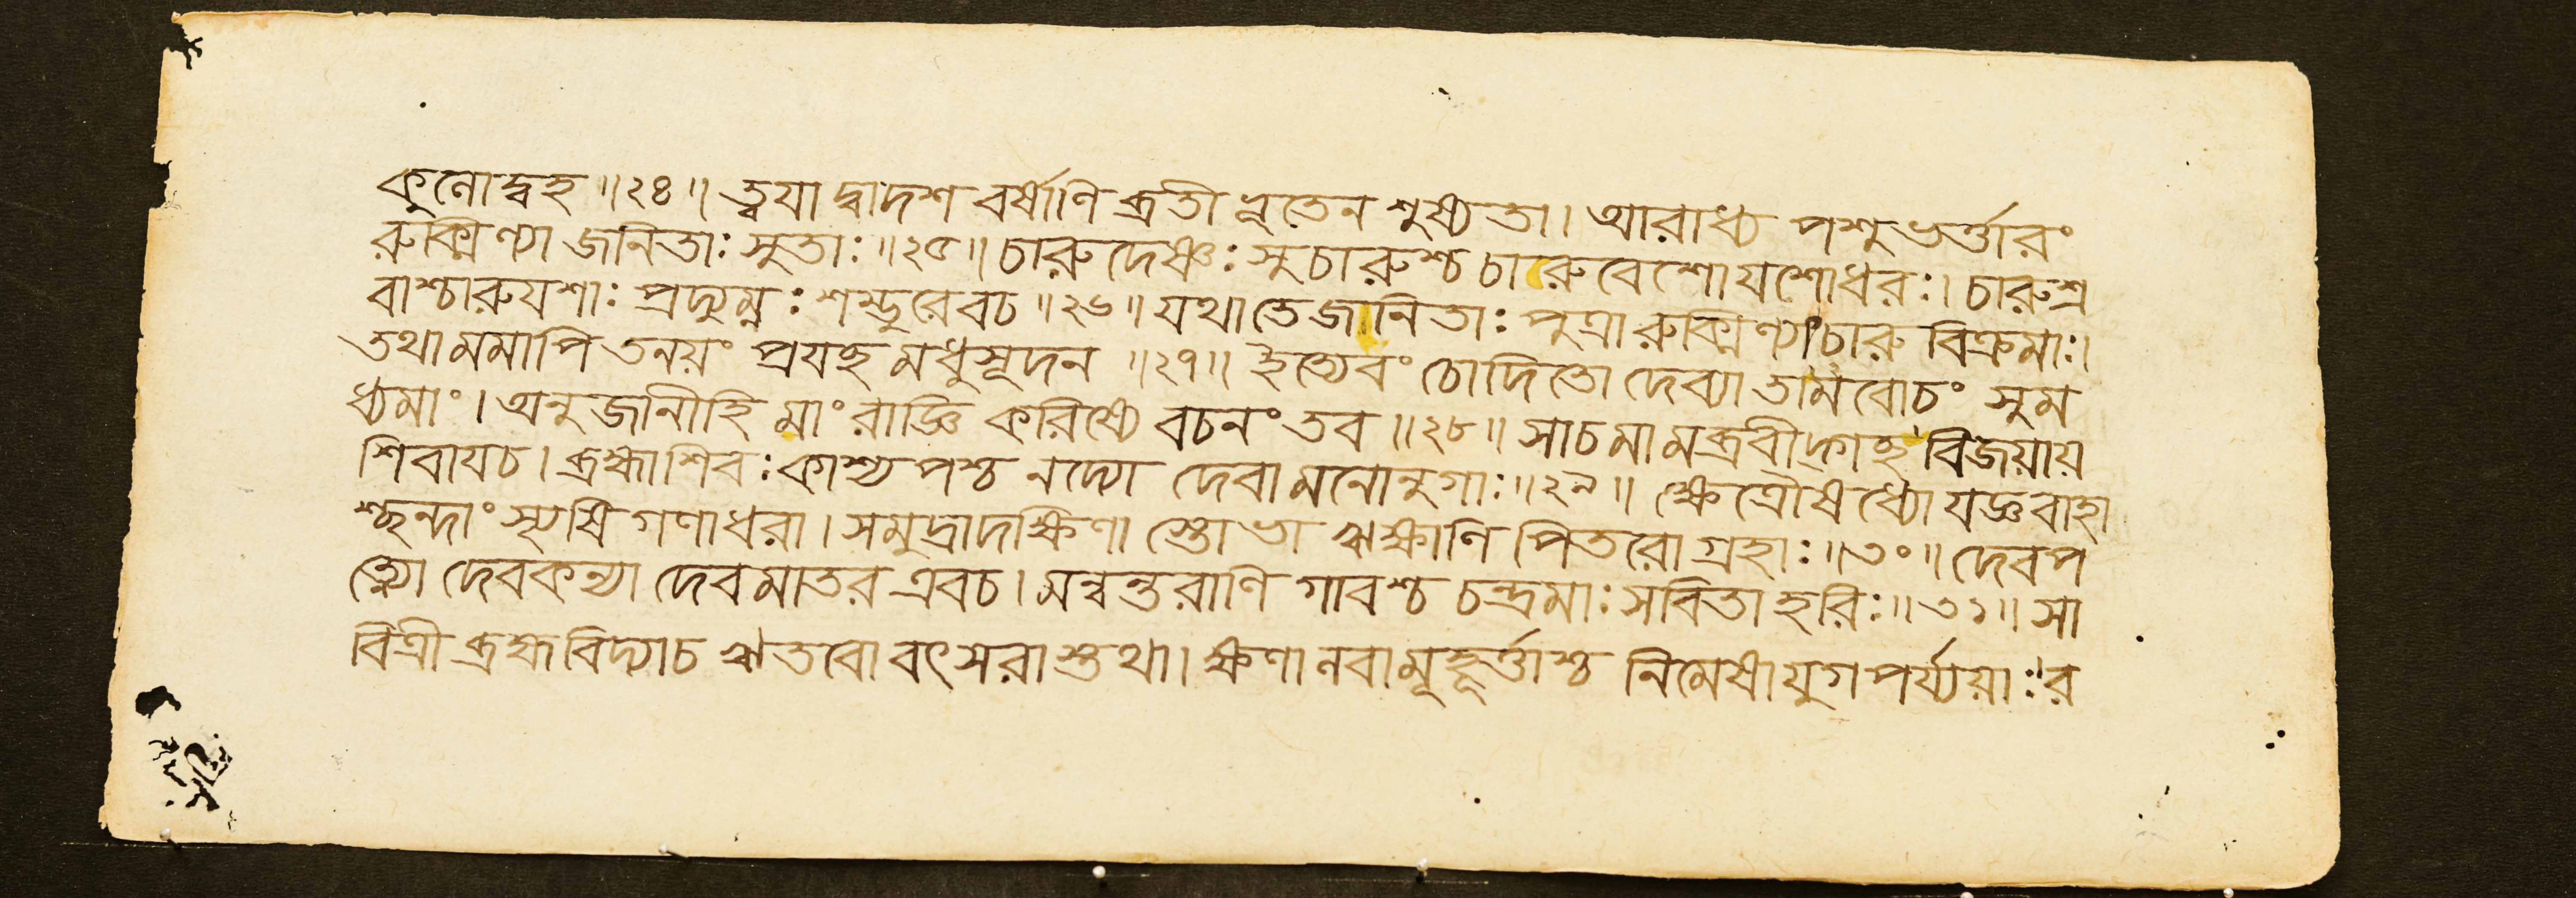 কুলোদ্বহ ॥২৪॥ ত্বযা দ্বাদশ বর্ষাণি ব্রতীভূতেন শুষ্যতা। আরাধ্য পশুভর্ত্তারং
রুক্মিণ্যা জনিতাঃ সুতাঃ ॥২৫॥ চারুদেষ্ণঃ সুচারুশ্চ চারুবেশো যশোধরঃ। চারুশ্র
বাশ্চারুযশাঃ প্রদ্যুম্নঃ শম্ভুরেবচ ॥২৬॥ যথা তে জানিতাঃ পুত্রা রুক্মিণ্যাং চারু বিক্রমাঃ।
তথা মমাপি তনয়ং প্রযচ্ছ মধুসূদন ॥২৭॥ ইত্যেবং চোদিতো দেব্যা তামবোচং সুম
ধ্যমাং। অনুজানীহি মাং রাজ্ঞি করিষ্যে বচনং তব ॥২৮॥ সাচ মামব্রবীদ্গচ্ছ বিজয়ায়
শিবাযচ। ব্রহ্মা শিবঃ কাশ্যপশ্চ নদ্যো দেবা মনোনুগাঃ ॥২৯॥ ক্ষেত্রৌষধ্যো যজ্ঞবাহা
শ্ছন্দাংস্যৃষিগণা ধরা। সমুদ্রা দক্ষিণা স্তোভা ঋক্ষাণি পিতরো গ্রহাঃ ॥৩০॥ দেবপ
ত্ন্যো দেবকন্যা দেবমাতর এবচ। মন্বন্তরাণি গাবশ্চ চন্দ্রমাঃ সবিতা হরিঃ ॥৩১॥ সা
বিত্রী ব্রহ্মবিদ্যাচ ঋতবো বৎসরাস্তথা। ক্ষণা নবা মূহূর্ত্তাশ্চ নিমেষা যুগপর্য্যয়াঃ। র